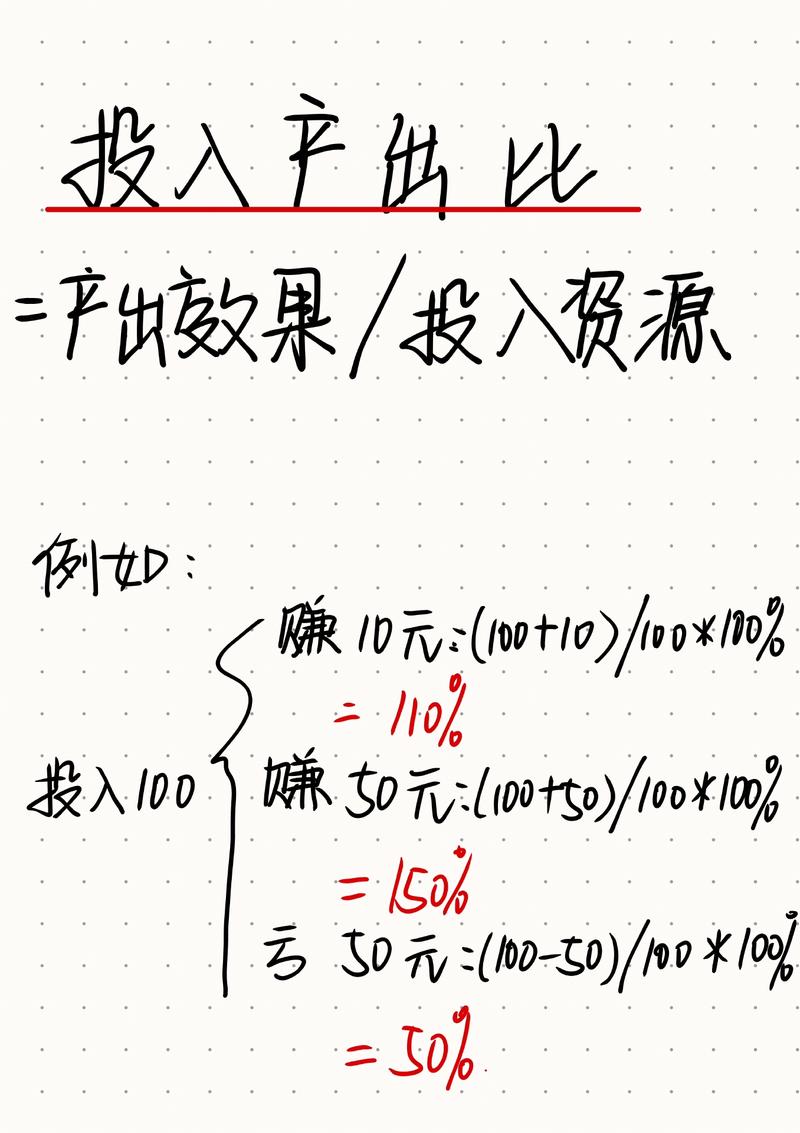 投入产出比
=产出效果/投入资源
例如:
赚10元:(100+10)/100*100%
=110%
投入100
赚50元:(100+50)/100*100%
=150%
亏50元:(100-50)/100*100%
=50%.